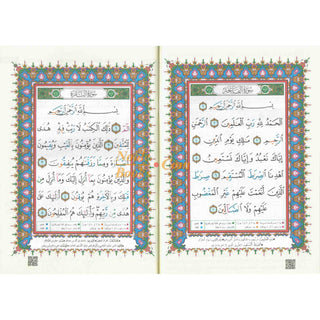 سُورَةُ الْفَاتِحَةِ
بِسْمِ اللَّهِ الرَّحْمَٰنِ الرَّحِيمِ ①
الْحَمْدُ لِلَّهِ رَبِّ الْعَالَمِينَ ② الرَّحْمَٰنِ
الرَّحِيمِ ③ مَالِكِ يَوْمِ الدِّينِ ④
إِيَّاكَ نَعْبُدُ وَإِيَّاكَ نَسْتَعِينُ ⑤
اهْدِنَا الصِّرَاطَ الْمُسْتَقِيمَ ⑥ صِرَاطَ
الَّذِينَ أَنْعَمْتَ عَلَيْهِمْ غَيْرِ الْمَغْضُوبِ
عَلَيْهِمْ وَلَا الضَّالِّينَ ⑦
سُورَةُ الْبَقَرَةِ
بِسْمِ اللَّهِ الرَّحْمَٰنِ الرَّحِيمِ
الم ① ذَٰلِكَ الْكِتَابُ لَا رَيْبَ فِيهِ هُدًى
لِلْمُتَّقِينَ ② الَّذِينَ يُؤْمِنُونَ بِالْغَيْبِ وَيُقِيمُونَ
الصَّلَاةَ وَمِمَّا رَزَقْنَاهُمْ يُنْفِقُونَ ③
وَالَّذِينَ يُؤْمِنُونَ بِمَا أُنْزِلَ إِلَيْكَ وَمَا أُنْزِلَ مِنْ
قَبْلِكَ وَبِالْآخِرَةِ هُمْ يُوقِنُونَ ④ أُولَٰئِكَ عَلَىٰ
هُدًى مِنْ رَبِّهِمْ وَأُولَٰئِكَ هُمُ الْمُفْلِحُونَ ⑤